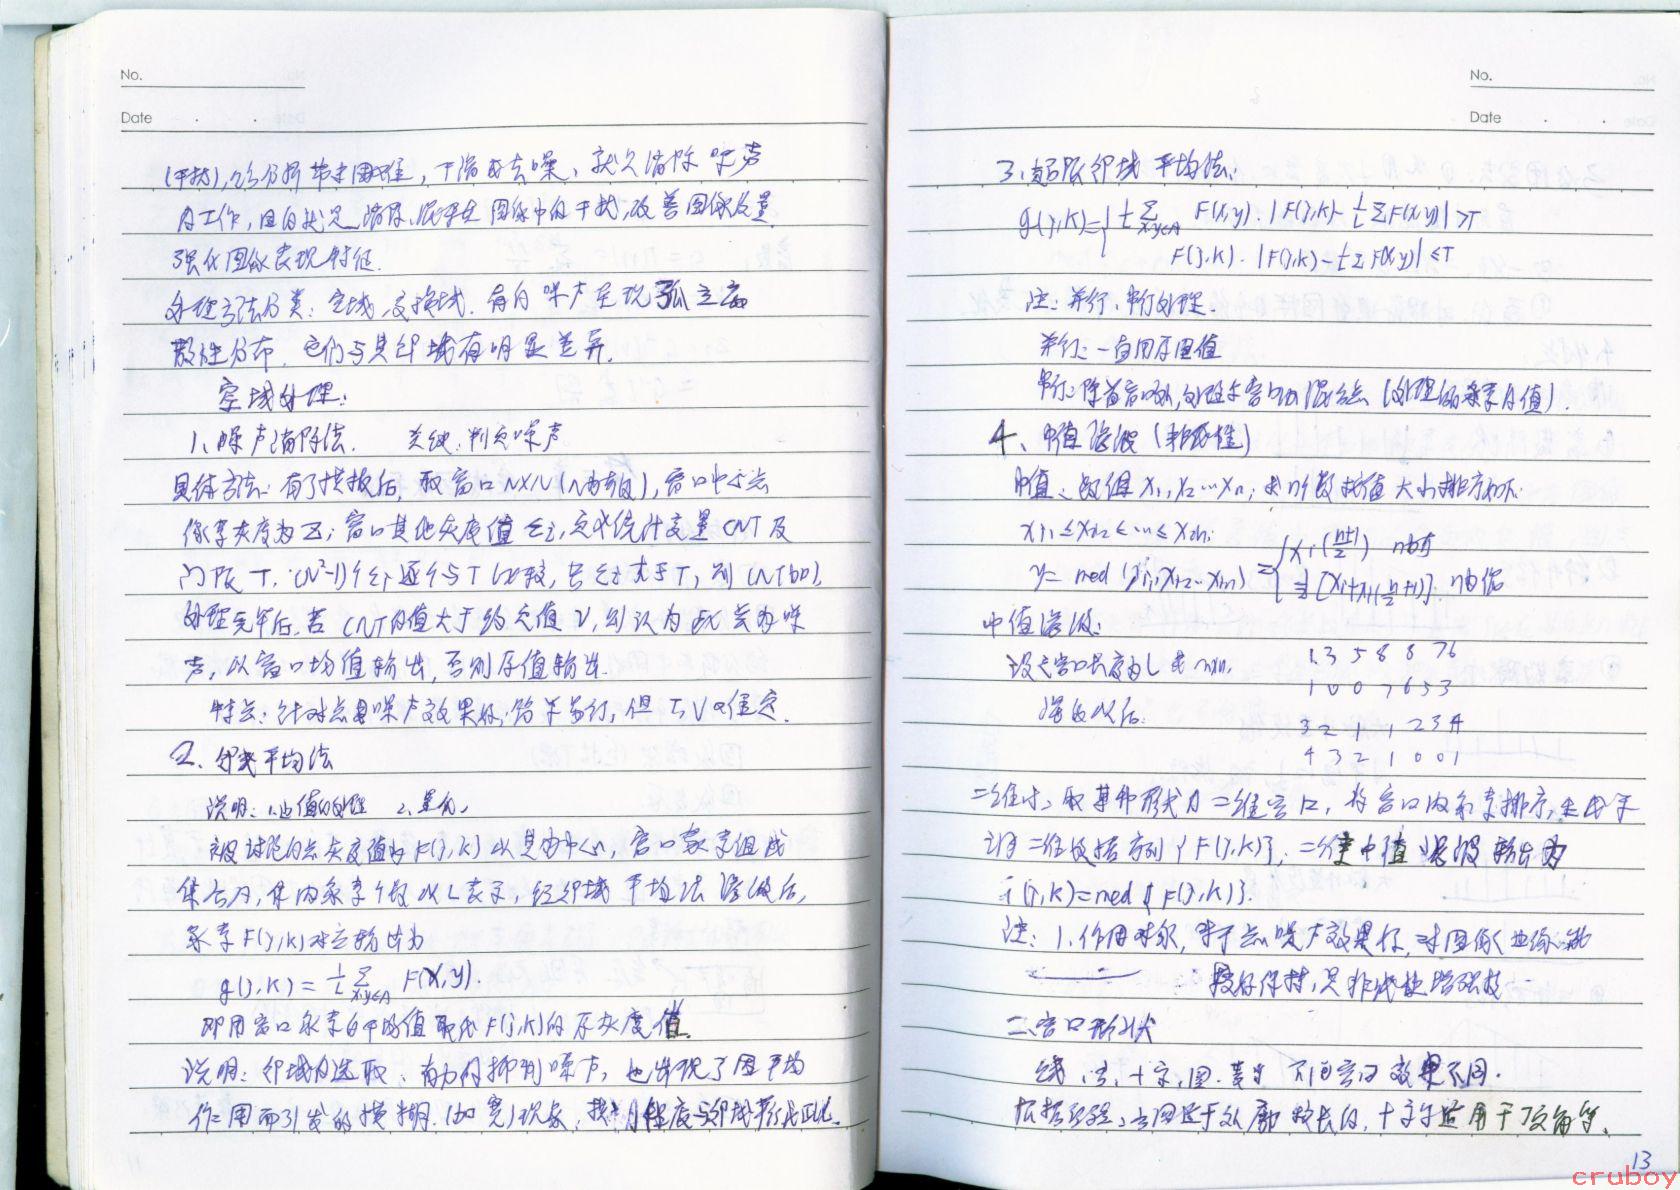 No.
Date
(干扰),给分析带来困难,平滑即去噪、就是消除噪声
的工作,目的就是消除、图像中的干扰,改善图像质量
强化图像表现特征.
处理方法分类:空域、变换域.有的噪声呈现孤立离
散性分布.它们与其邻域有明显差异.
空域处理:
1、噪声消除法. 关键:判定噪声
具体方法:有了模板后,取窗口N×N(N为奇数),窗口中心点
像素灰度为Z;窗口其他灰度值Zi,定义统计变量CNT及
门限T.(N²-1)个Zi逐个与T比较,若 大于T,则CNT加1,
处理完毕后,若CNT的值大于约定值V,则认为此点为噪
声,以窗口均值输出,否则原值输出.
特点:针对点噪声效果好;简单易行,但T、V难定.
2、邻域平均法
说明:
被讨论的点灰度值为F(j,k)以其为中心,窗口像素组成
集合A,集内像素个数以L表示,经邻域平均法滤波后,
像素F(j,k)对应输出为
g(j,k)=1/L Σ x,y∈A F(x,y).
即用窗口像素的平均值取代F(j,k)的原灰度值.
说明:邻域的选取、有力的抑制噪声,也出现了因平均
作用而引发的模糊.(加宽)现象,模糊程度与邻域形成正比.
No.
Date
3、超限邻域平均法:
g(j,k)={ 1/L Σ x,y∈A F(x,y).|F(j,k)-1/L ΣF(x,y)|>T
F(j,k).|F(j,k)-1/L ΣF(x,y)|≤T
注:并行、串行处理.
并行:一直用原图值
串行:除首窗口外,处理与窗口为混合点(处理的像素值).
4、中值滤波(非线性)
中值:数组X1,X2…Xn;其n个数按值大小排序如下:
xi1≤xi2≤…≤xin:
y=med(xi1,xi2…xin)={xi(n+1/2) n为奇
1/2[xi+xi(n/2+1)]. n为偶
中值滤波:
设窗口长度为L
1 3 5 8 8 7 6
1 0 0 7 6 5 3
滤波以后:
3 2 1 1 2 3 4
4 3 2 1 0 0 1
二维时、取某种形式的二维窗口,将窗口内像素排序,
二维数据序列{F(j,k)},二维中值滤波输出为
(j,k)=med{F(j,k)}.
注:1.作用对象,对于点噪声效果好,对图像边缘能
较好保持,是非线性增强技
二、窗口形状
线、方、十字、圆、菱形 不同窗口效果不同.
根据经验、方圆适于外廓较长的,十字窗适用于顶角等.
13
cruboy